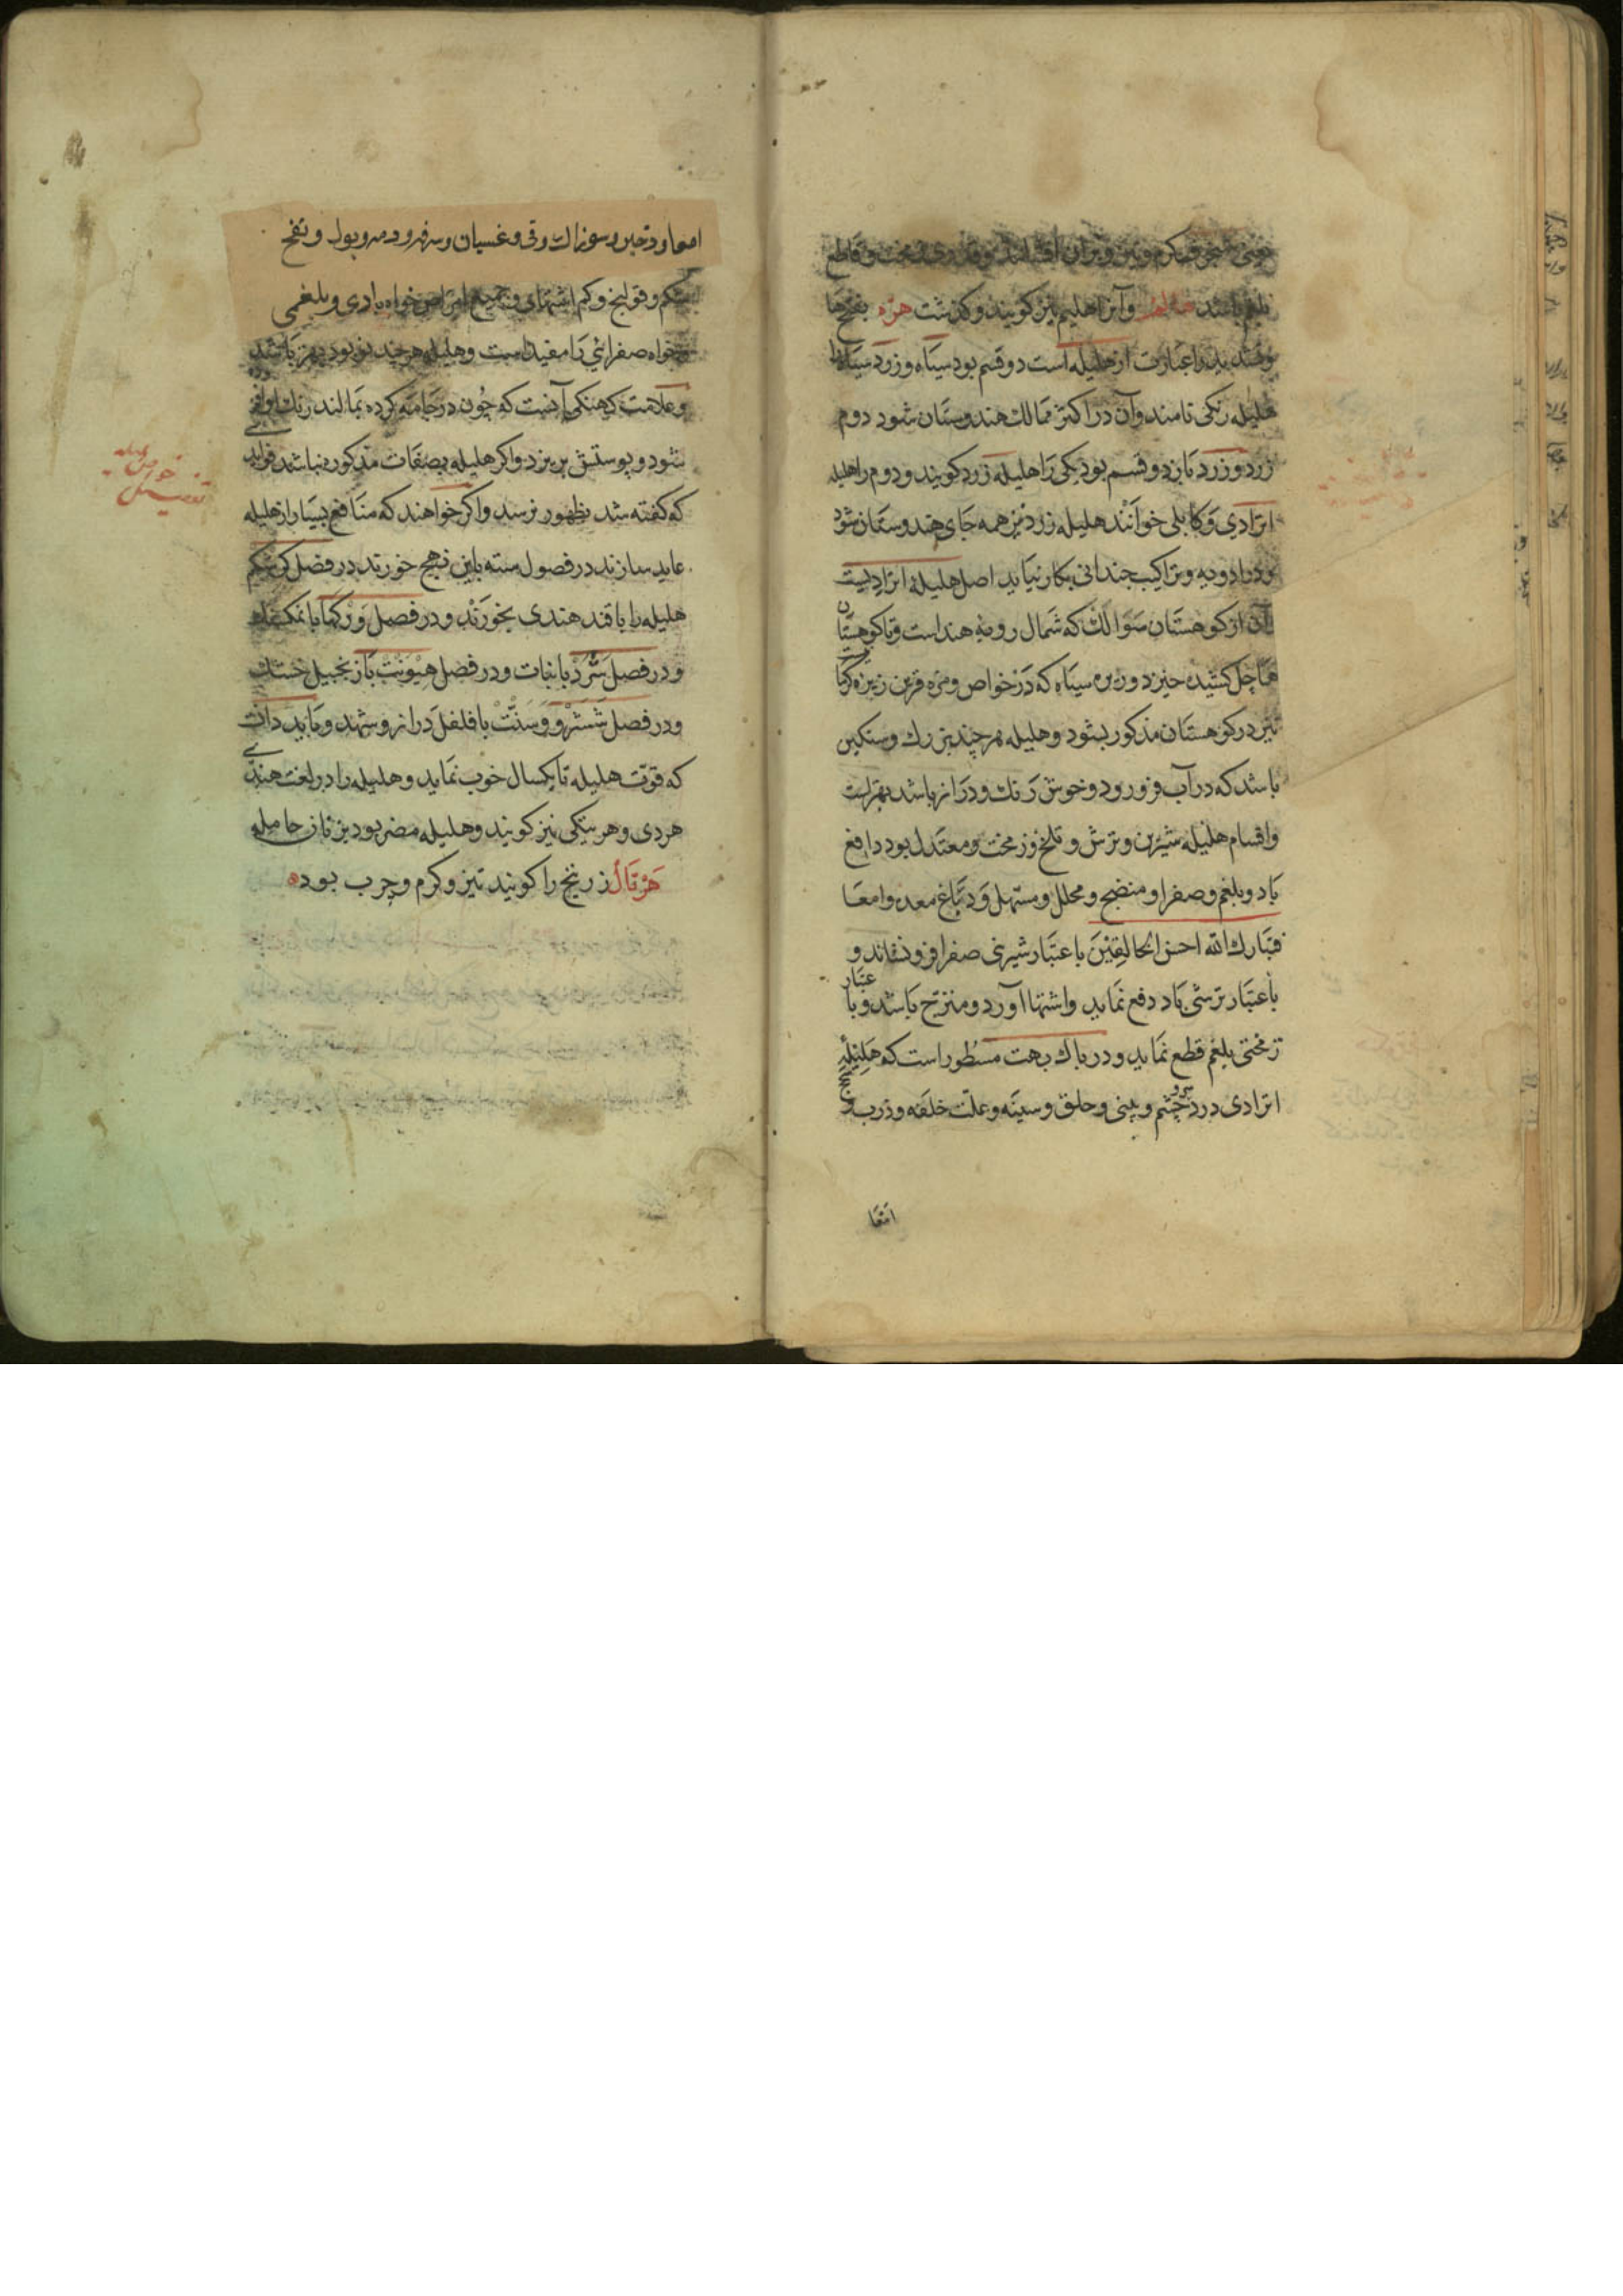 بلغم باشد وآنرا هلیم نیز کویند و کذشت هرّه بفتح ها
و تشدید را عبارت از هلیله است دو قسم بود سیاه و زرد سیاه را
هلیله زنکی نامند وآن در اکثر ممالك هندوستان شود دوم
زرد و زرد باز دو قسم بود یکی را هلیله زرد کویند و دوم را هلیله
ابرادی و کابلی خوانند هلیله زرد نیز همه جای هندوستان شود
و در ادویه و تراکیب چندانی بکار نیاید اصل هلیله ابرادیست
آن از کوهستان سوالك که شمال رویه هند است و تا کوهستان
هماچل کشیده خیزد و زیره سیاه که در خواص و مزه قرین زیره کرما
نیز در کوهستان مذکور بشود و هلیله هر چند بزرك و سنکین
باشد که در آب فرو رود و خوش رنك و دراز باشد بهتر است
واقسام هلیله شیرین و ترش و تلخ و زمخت و معتدل بود دافع
باد و بلغم و صفرا و منضج و محلل و مسهل و دباغ معده و امعا
فتبارك الله احسن الخالقین باعتبار شیرینی صفرا فرو نشاند و
باعتبار ترشی باد دفع نماید واشتها آورد و باشد و با عتبار
زمختی بلغم قطع نماید و در باك بهت مسطور است که هلیله
ابرادی درد چشم و بینی و حلق و سینه و علت خلفه و ذرب و
امعا
امعا و زحیر و سوزاك و قی و غسیان و سرفه و دمه و بول و نفخ
شکم و قولنج و کم اشتهای و جمیع امراض خواه بادی و بلغمی
و خواه صفرائی را مفید است و هلیله هر چند نو بود بهتر باشد
و علامت کهنکی آنست که چون در جامه کرده بمالند رنك او
شود و پوستش بریزد و اکر هلیله بصفات مذکور نباشد فواید
که کفته شد بظهور نرسد و اکر خواهند که منافع بسیار از هلیله
عاید سازند در فصول سته باین نهج خورند در فصل کریکم
هلیله را با قند هندی بخورند و در فصل ورکها با نمك
و در فصل سرد با نبات و در فصل هیونت با زنجبیل خشك
و در فصل ششر و وسنت با فلفل دراز و شهد و باید دانست
که قوت هلیله تا یکسال خوب نماید و هلیله را در لغت هندی
هردی و هریتکی نیز کویند و هلیله مضر بود بزنان حامله
هرتال زرنیخ را کویند تیز و کرم و چرب بوده
خوردن هلیله